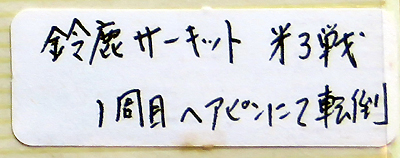 鈴鹿サーキット 米3戦
1周目ヘアピンにて転倒